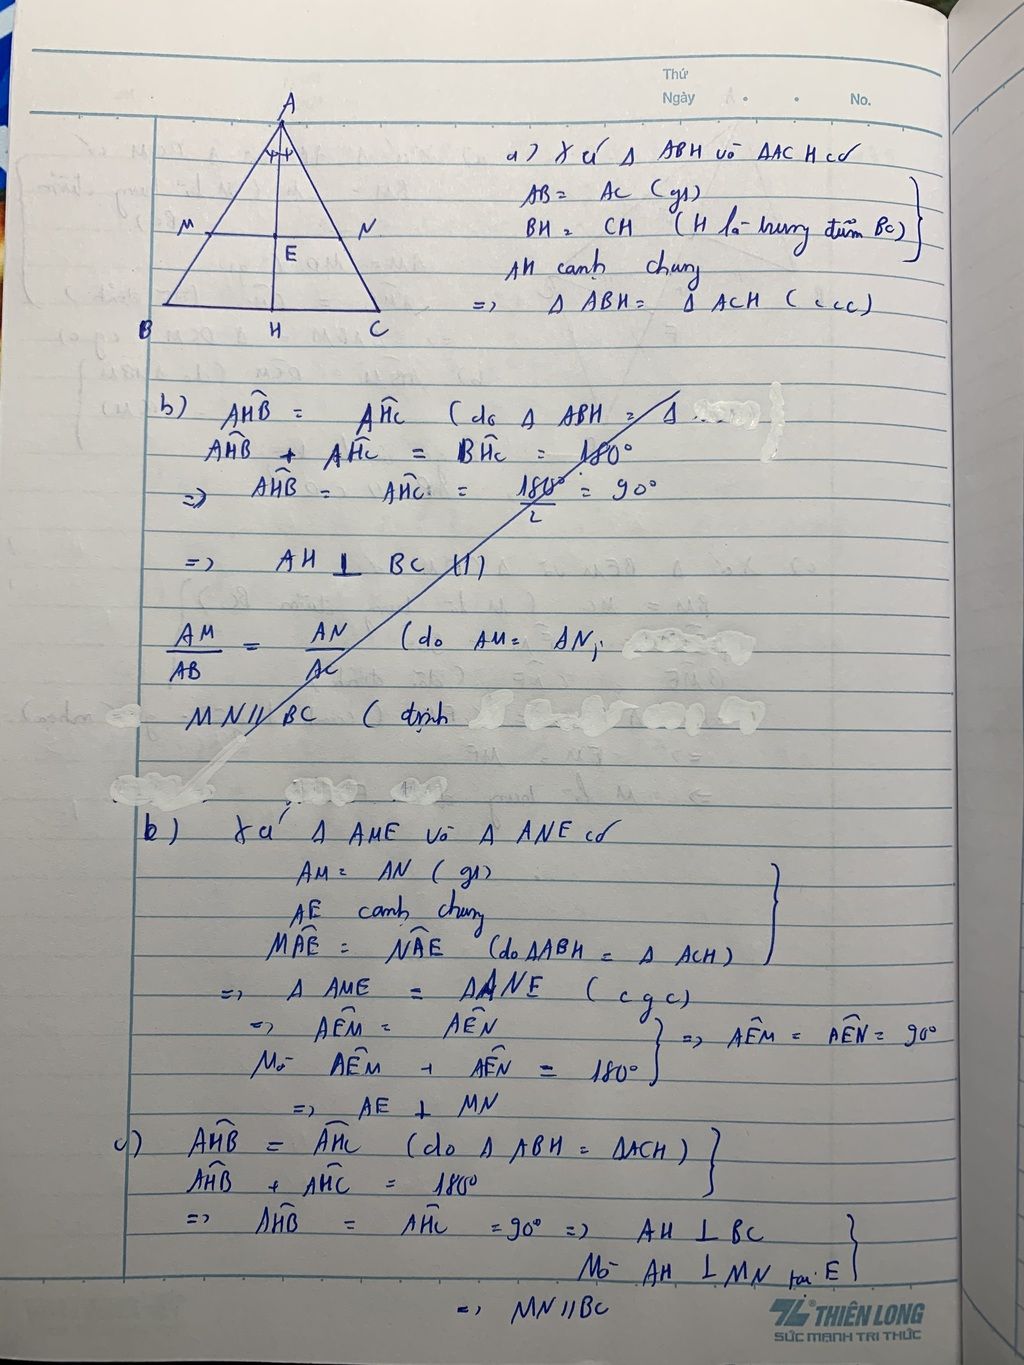 Thứ
Ngày . . No.
A
M N
E
B H C
a) Xét Δ ABH và ΔACH có
AB = AC (gt)
BH = CH (H là trung điểm BC)
AH cạnh chung
=> Δ ABH = Δ ACH (ccc)
b) AĤB = AĤC (do Δ ABH = Δ
AĤB + AĤC = BĤC = 180°
=> AĤB = AĤC = 180°/2 = 90°
=> AH ⊥ BC (1)
AM/AB = AN/AC (do AM = AN;
MN // BC (định
b) Xét Δ AME và Δ ANE có
AM = AN (gt)
AE cạnh chung
MÂE = NÂE (do ΔABH = Δ ACH)
=> Δ AME = ΔANE (cgc)
=> AÊM = AÊN
Mà AÊM + AÊN = 180° => AÊM = AÊN = 90°
=> AE ⊥ MN
c) AĤB = AĤC (do Δ ABH = ΔACH)
AĤB + AĤC = 180°
=> AĤB = AĤC = 90° => AH ⊥ BC
Mà AH ⊥ MN tại E
=> MN // BC
THIÊN LONG
SỨC MẠNH TRI THỨC